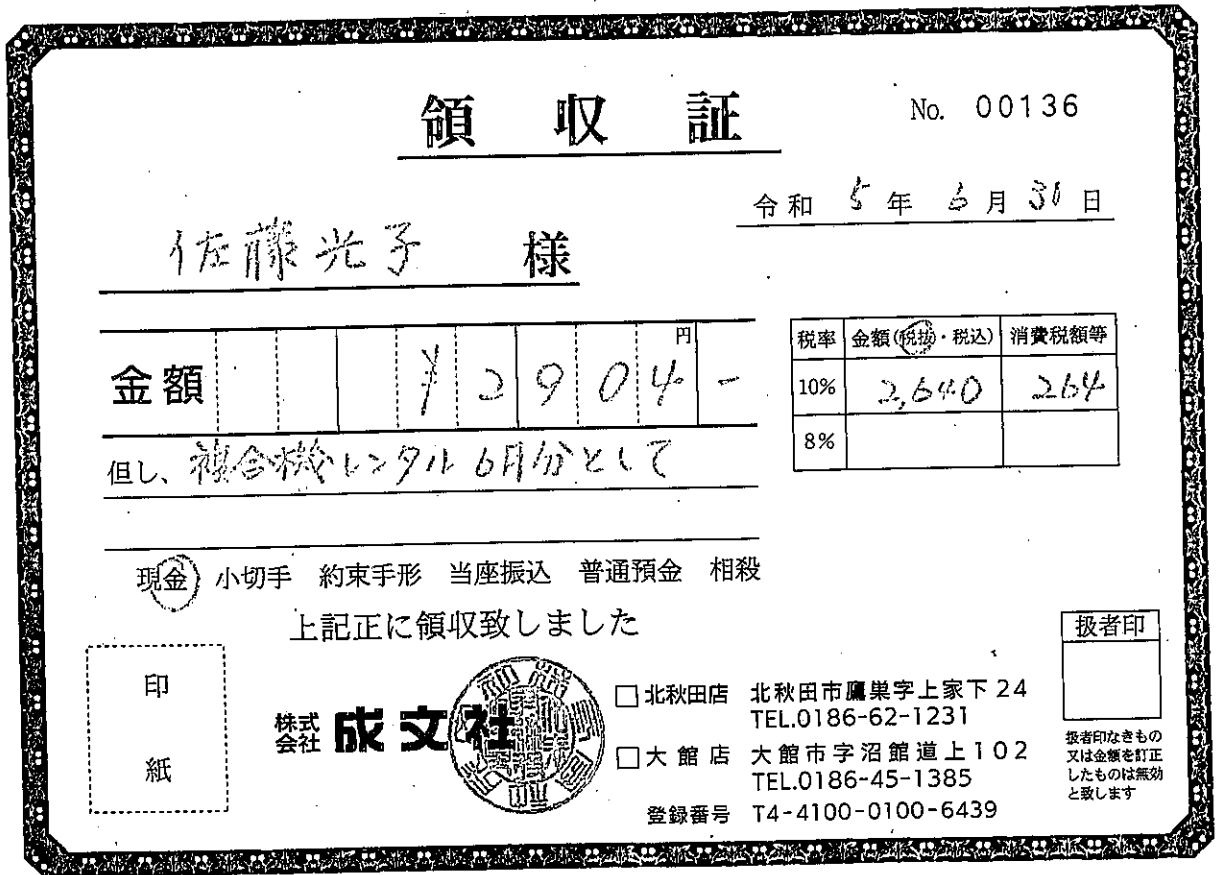 領収証
No. 00136
令和 5年 6月 30日
佐藤光子 様
金額 ¥2904- 円
税率 金額(税抜・税込) 消費税額等
10% 2,640 264
8%
但し、複合機レンタル6月分として
現金 小切手 約束手形 当座振込 普通預金 相殺
上記正に領収致しました
印紙
株式会社 成文社
□北秋田店 北秋田市鷹巣字上家下24
TEL.0186-62-1231
□大館店 大館市字沼館道上102
TEL.0186-45-1385
登録番号 T4-4100-0100-6439
扱者印
扱者印なきもの
又は金額を訂正
したものは無効
と致します